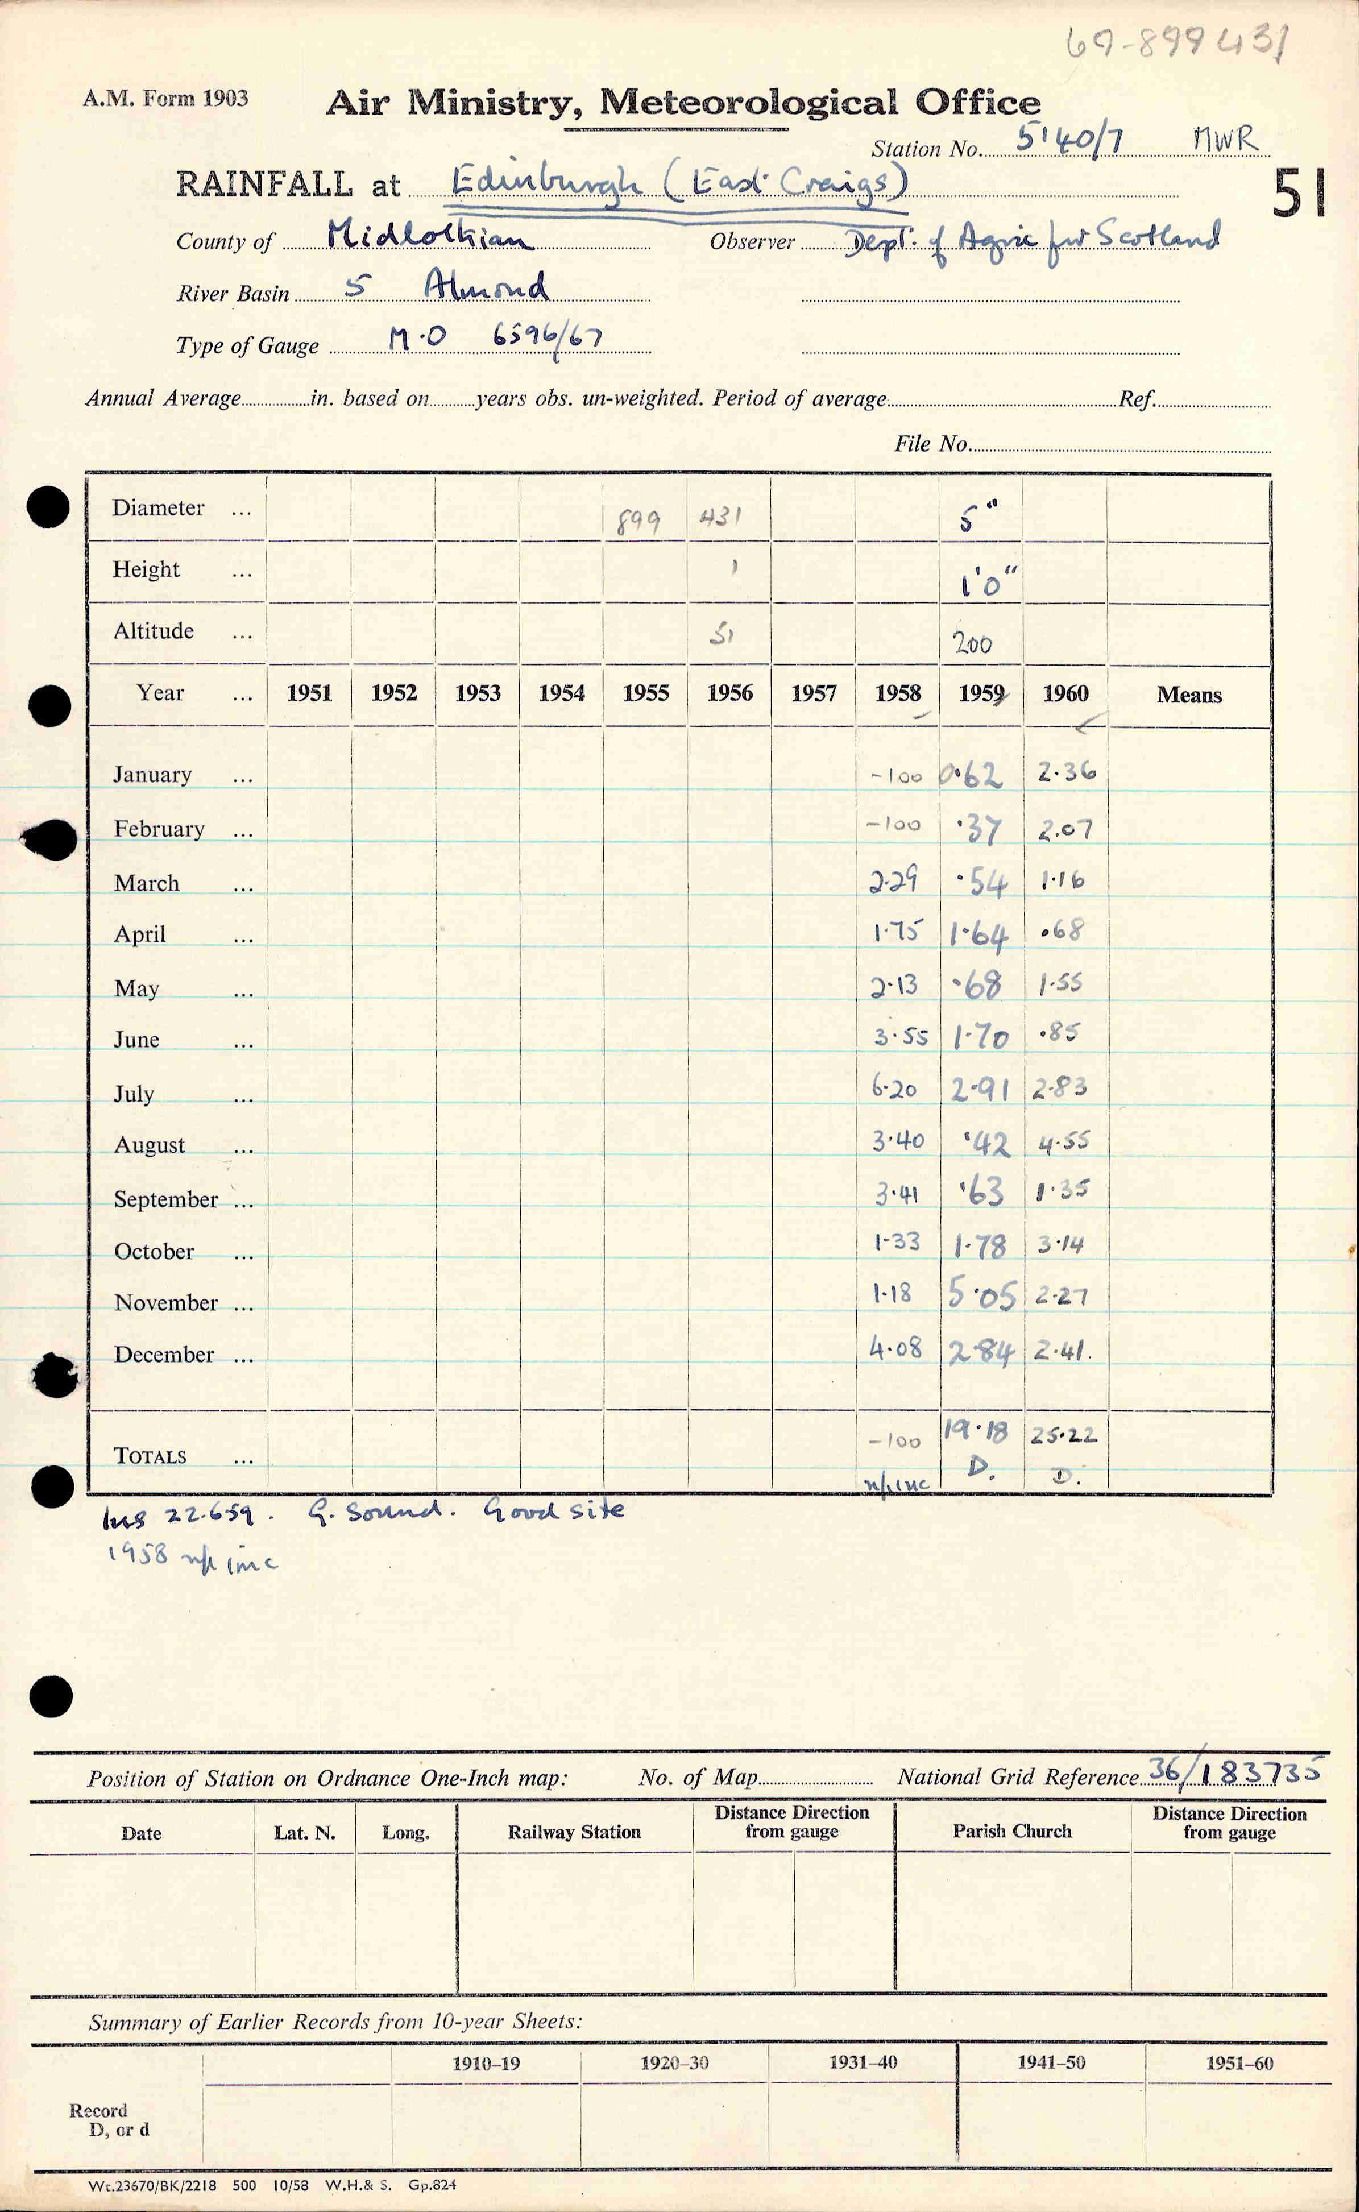 69-899431
A.M. Form 1903
Air Ministry, Meteorological Office
Station No. 5140/7 MWR
RAINFALL at Edinburgh (East Craigs)
51
County of Midlothian Observer Dept. of Agric for Scotland
River Basin 5 Almond
Type of Gauge M.O 6596/67
Annual Average in. based on years obs. un-weighted. Period of average Ref.
File No.
Diameter ... 899 431 5"
Height ... 1 1'0"
Altitude ... 51 200
Year ... 1951 1952 1953 1954 1955 1956 1957 1958 1959 1960 Means
January ... -100 0.62 2.36
February ... -100 .37 2.07
March ... 2.29 .54 1.16
April ... 1.75 1.64 .68
May ... 2.13 .68 1.55
June ... 3.55 1.70 .85
July ... 6.20 2.91 2.83
August ... 3.40 .42 4.55
September ... 3.41 .63 1.35
October ... 1.33 1.78 3.14
November ... 1.18 5.05 2.27
December ... 4.08 2.84 2.41.
TOTALS ... -100 19.18 25.22
inc D. D.
Ins 22.6.59. G. Sound. Good site
1958 inc
Position of Station on Ordnance One-Inch map: No. of Map National Grid Reference 36/183735
Date Lat. N. Long. Railway Station Distance Direction from gauge Parish Church Distance Direction from gauge
Summary of Earlier Records from 10-year Sheets:
1910–19 1920–30 1931–40 1941–50 1951–60
Record
D, or d
Wt.23670/BK/2218 500 10/58 W.H.& S. Gp.824